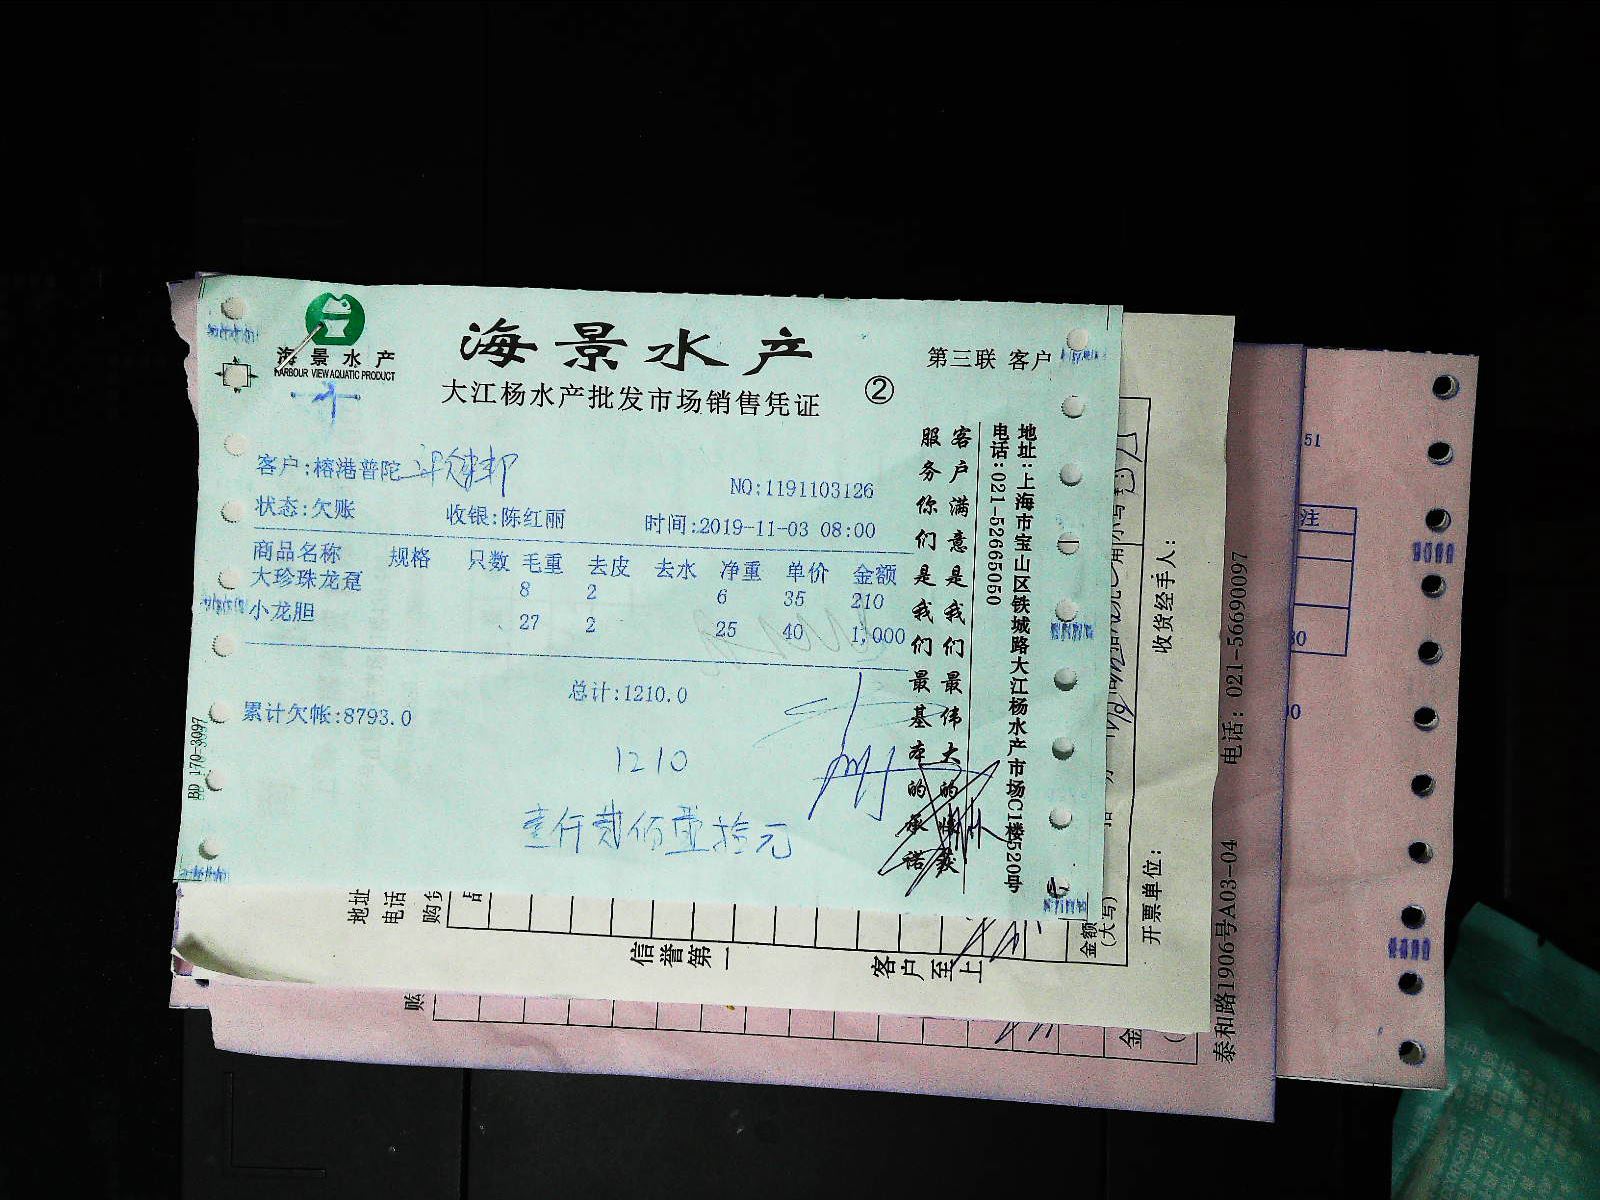 海景水产
HARBOUR VIEW AQUATIC PRODUCT
海景水产
大江杨水产批发市场销售凭证
②
第三联 客户
客户:榕港普陀
NO:1191103126
状态:欠账 收银:陈红丽 时间:2019-11-03 08:00
商品名称 规格 只数 毛重 去皮 去水 净重 单价 金额
大珍珠龙趸 8 2 6 35 210
小龙胆 27 2 25 40 1,000
总计:1210.0
累计欠帐:8793.0
1210
壹仟贰佰壹拾元
客户满意是我们最伟大的
服务你们是我们最基本的承诺
地址:上海市宝山区铁城路大江杨水产市场C1楼520号
电话:021-52665050
BD 170-3097
地址
电话
信誉第一
客户至上
金额
(大写)
开票单位:
收货经手人:
泰和路1906号A03-04
电话: 021-56690097
购
金
注
51